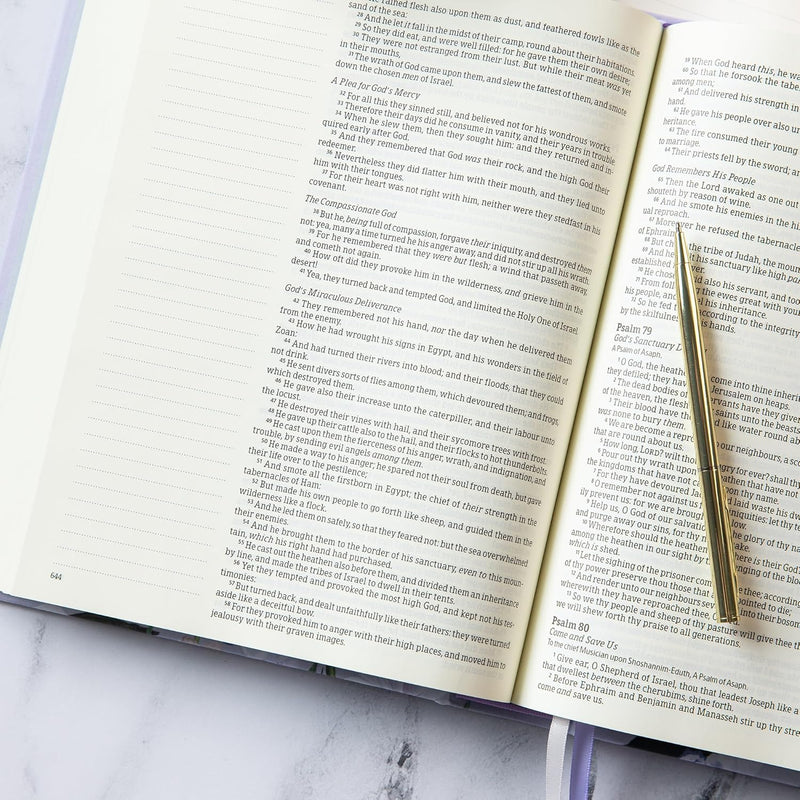 rained flesh also upon them as dust, and feathered fowls like as the
sand of the sea.
28 And he let it fall in the midst of their camp, round about their habitations.
29 So they did eat, and were well filled: for he gave them their own desire;
30 They were not estranged from their lust. But while their meat was yet
in their mouths,
31 The wrath of God came upon them, and slew the fattest of them, and smote
down the chosen men of Israel.
A Plea for God's Mercy
32 For all this they sinned still, and believed not for his wondrous works.
33 Therefore their days did he consume in vanity, and their years in trouble
34 When he slew them, then they sought him: and they returned and in-
quired early after God.
35 And they remembered that God was their rock, and the high God their
redeemer.
36 Nevertheless they did flatter him with their mouth, and they lied unto
him with their tongues.
37 For their heart was not right with him, neither were they stedfast in his
covenant.
The Compassionate God
38 But he, being full of compassion, forgave their iniquity, and destroyed them
not: yea, many a time turned he his anger away, and did not stir up all his wrath.
39 For he remembered that they were but flesh; a wind that passeth away,
and cometh not again.
40 How oft did they provoke him in the wilderness, and grieve him in the
desert!
41 Yea, they turned back and tempted God, and limited the Holy One of Israel.
God's Miraculous Deliverance
42 They remembered not his hand, nor the day when he delivered them
from the enemy.
43 How he had wrought his signs in Egypt, and his wonders in the field of
Zoan:
44 And had turned their rivers into blood; and their floods, that they could
not drink.
45 He sent divers sorts of flies among them, which devoured them; and frogs,
which destroyed them.
46 He gave also their increase unto the caterpiller, and their labour unto
the locust.
47 He destroyed their vines with hail, and their sycomore trees with frost.
48 He gave up their cattle also to the hail, and their flocks to hot thunderbolts.
49 He cast upon them the fierceness of his anger, wrath, and indignation, and
trouble, by sending evil angels among them.
50 He made a way to his anger; he spared not their soul from death, but gave
their life over to the pestilence;
51 And smote all the firstborn in Egypt; the chief of their strength in the
tabernacles of Ham:
52 But made his own people to go forth like sheep, and guided them in the
wilderness like a flock.
53 And he led them on safely, so that they feared not: but the sea overwhelmed
their enemies.
54 And he brought them to the border of his sanctuary, even to this moun-
tain, which his right hand had purchased.
55 He cast out the heathen also before them, and divided them an inheritance
by line, and made the tribes of Israel to dwell in their tents.
56 Yet they tempted and provoked the most high God, and kept not his tes-
timonies:
57 But turned back, and dealt unfaithfully like their fathers: they were turned
aside like a deceitful bow.
58 For they provoked him to anger with their high places, and moved him to
jealousy with their graven images.
644
59 When God heard this, he wa
60 So that he forsook the tabe
among men;
61 And delivered his strength in
hand.
62 He gave his people over also un
heritance.
63 The fire consumed their young
to marriage.
64 Their priests fell by the sword; an
God Remembers His People
65 Then the Lord awaked as one out
shouteth by reason of wine.
66 And he smote his enemies in the hi
ual reproach.
67 Moreover he refused the tabernacle
of Ephraim
68 But ch the tribe of Judah, the moun
69 And he his sanctuary like high pa
established ever.
70 He chose d also his servant, and too
71 From foll the ewes great with youn
his people, and el his inheritance.
72 So he fed according to the integrity
by the skilfulness s hands.
Psalm 79
God's Sanctuary D
A Psalm of Asaph.
1 O God, the heathe come into thine inherit
they defiled; they have Jerusalem on heaps.
2 The dead bodies of ervants have they given
of the heaven, the flesh saints unto the beasts
3 Their blood have they d like water round ab
was none to bury them.
4 We are become a repro our neighbours, a sco
that are round about us.
5 How long, LORD? wilt thou ngry for ever? shall th
6 Pour out thy wrath upon eathen that have not
the kingdoms that have not c pon thy name.
7 For they have devoured Jac laid waste his dw
8 O remember not against us iniquities: let thy te
ily prevent us: for we are brough low.
9 Help us, O God of our salvatio the glory of thy na
and purge away our sins, for thy n ake.
10 Wherefore should the heathen ere is their God?
among the heathen in our sight by t nging of the bloo
which is shed.
11 Let the sighing of the prisoner com e thee; accordin
of thy power preserve thou those that ointed to die;
12 And render unto our neighbours seve into their bosom
wherewith they have reproached thee,
13 So we thy people and sheep of thy pasture will give thee th
we will shew forth thy praise to all generations.
Psalm 80
Come and Save Us
To the chief Musician upon Shoshannim-Eduth, A Psalm of Asaph.
1 Give ear, O Shepherd of Israel, thou that leadest Joseph like a
that dwellest between the cherubims, shine forth.
2 Before Ephraim and Benjamin and Manasseh stir up thy stre
come and save us.